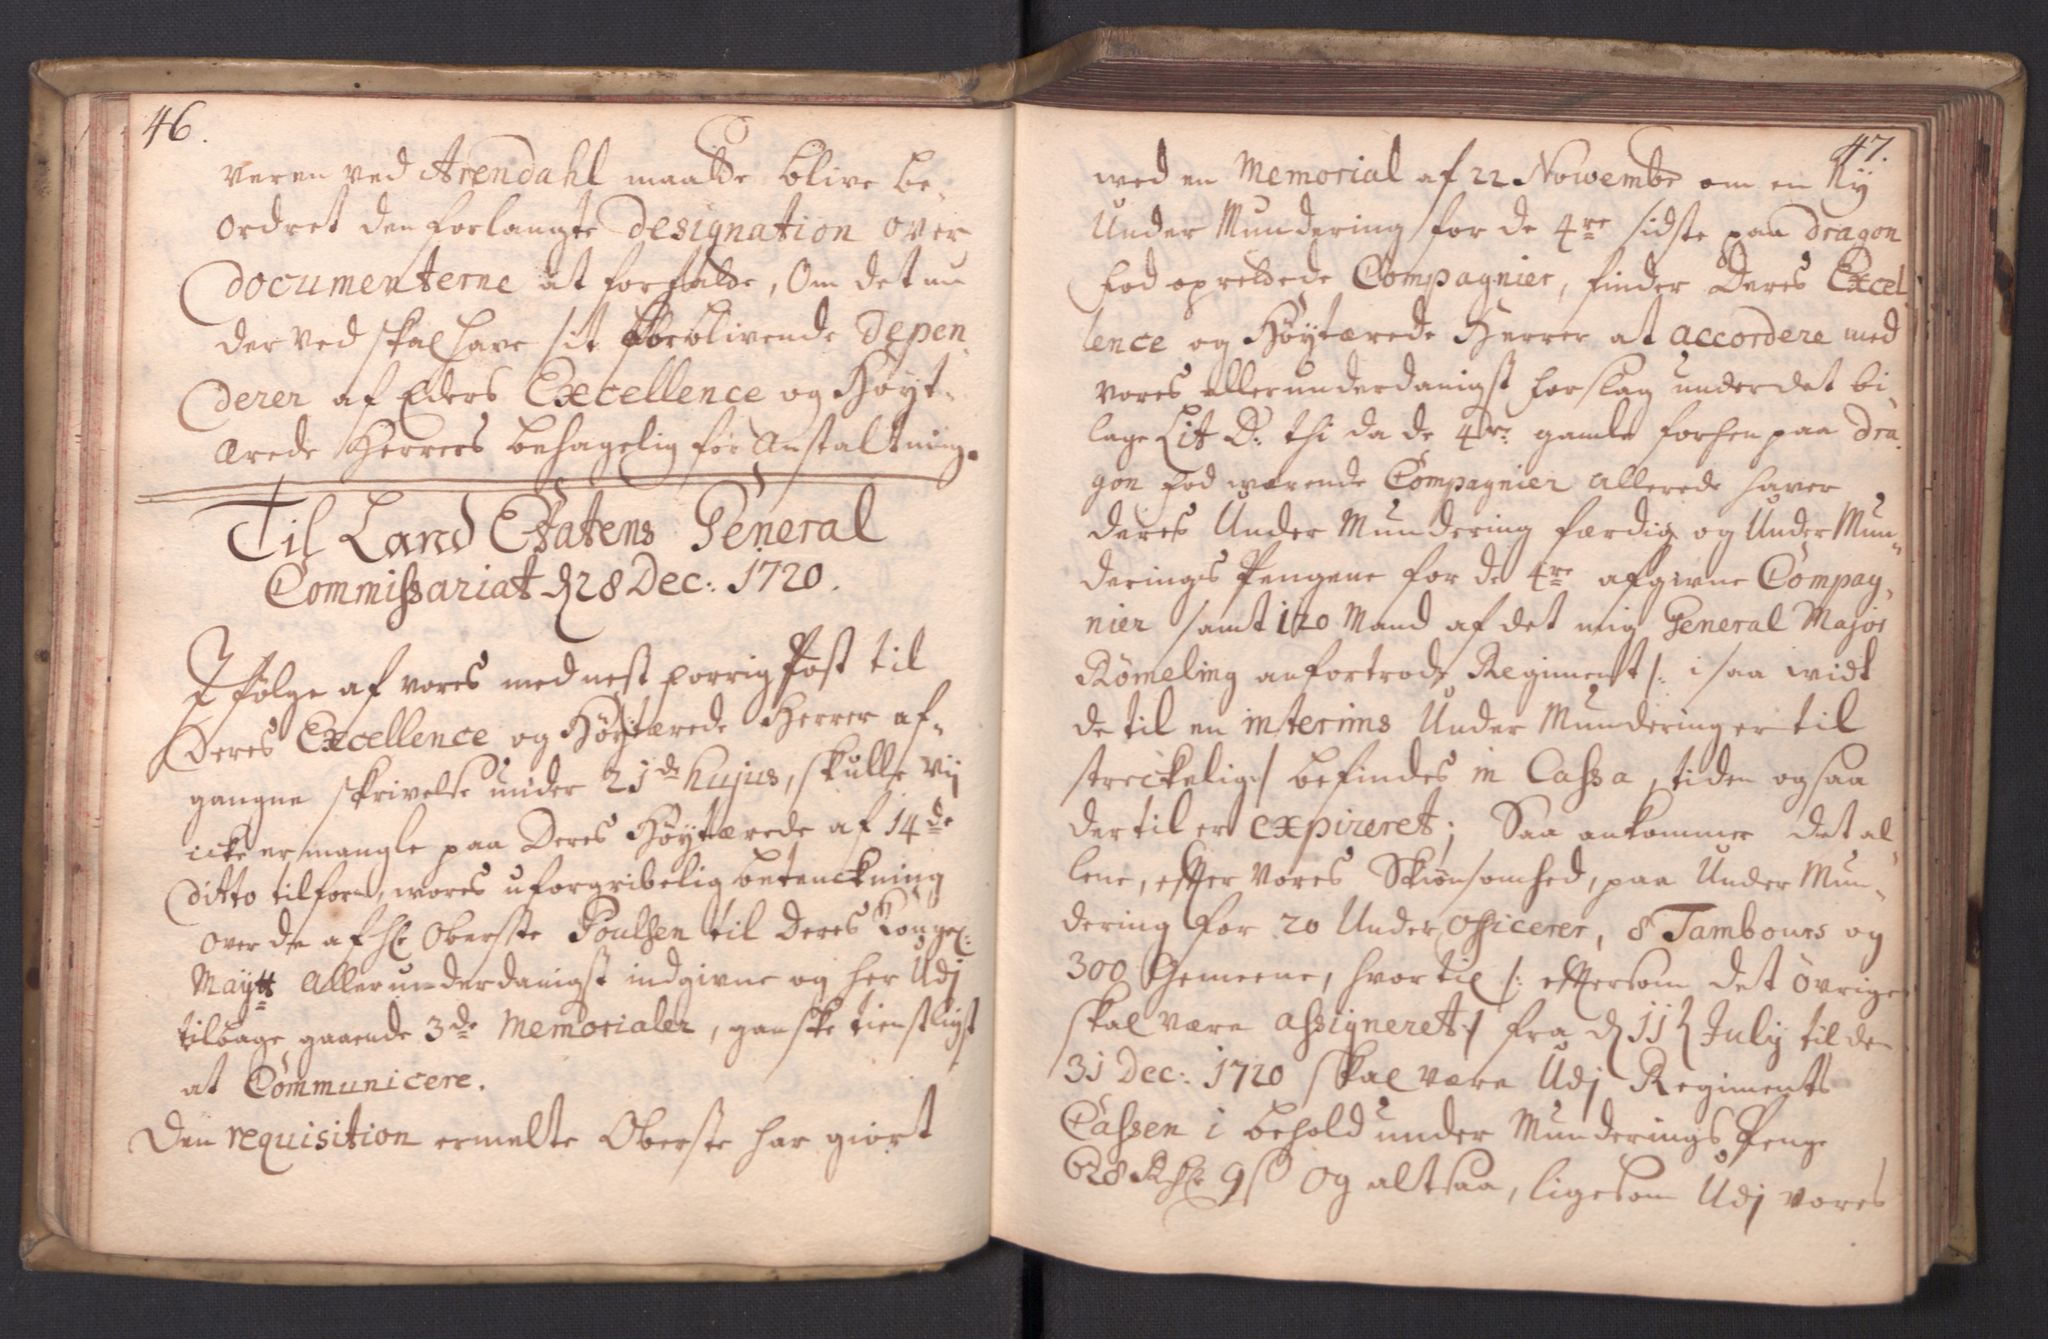 46.
veren ved Arendahl maatte blive be-
ordret den forlangte designation over
documenterne at forfatte, Om det nu
der ved skal have sit forblivende depen-
derer af Eders Excellence og Høyt-
ærede Herrers behagelig for Anstaltning.
Til Land Etatens General
Commissariat d 28 Dec: 1720.
I følge af vores med nest forrig Post til
Deres Excellence og Høytærede Herrer af-
gangne skrivelse under 21de hujus, skulle vij
icke ermangle paa Deres Høytærede af 14de
ditto tilforn, vores uforgribelig betenckning
over de af Hr Oberste Poulsen til Deres Kongel:
Maÿtt allerunderdanigst indgivne og her Udj
tilbage gaaende 3de Memorialer, ganske tienstligst
at Communicere.
Den requisition ermelte Oberste har giort
47.
wed en Memorial af 22 Novembr om en Nÿ
Under Mundering for de 4re sidste paa dragon
fod oprettede Compagnier, finder Deres Excel-
lence og Høytærede Herrer at accordere med
vores allerunderdanigst forslag under det bi-
lage Lit D: thi da de 4re gamle forhen paa dra-
gon fod værende Compagnier allerede haver
deres Under Mundering færdig og Under Mun-
derings Pengene for de 4re afgivne Compag-
nier samt 120 Mand af det mig General Major
Römeling anfortrode Regiment /: i saa widt
de til en interims Under Mundering er til
streckelig :/ befindes in Cassa, tiden og saa
dertil er expireret; Saa ankommer det al-
lene, efter vores Skiønsomhed, paa Under Mun-
dering for 20 Under Officerer, 8 Tambours og
300 Gemeene, hvortil /: eftersom det övrige
skal være assigneret :/ fra d 11 July til den
31 Dec: 1720 skal være Udj Regiments
Cassen i behold under Munderings Penge
628 Rdr 9 s Og altsaa, ligesom Udj vores